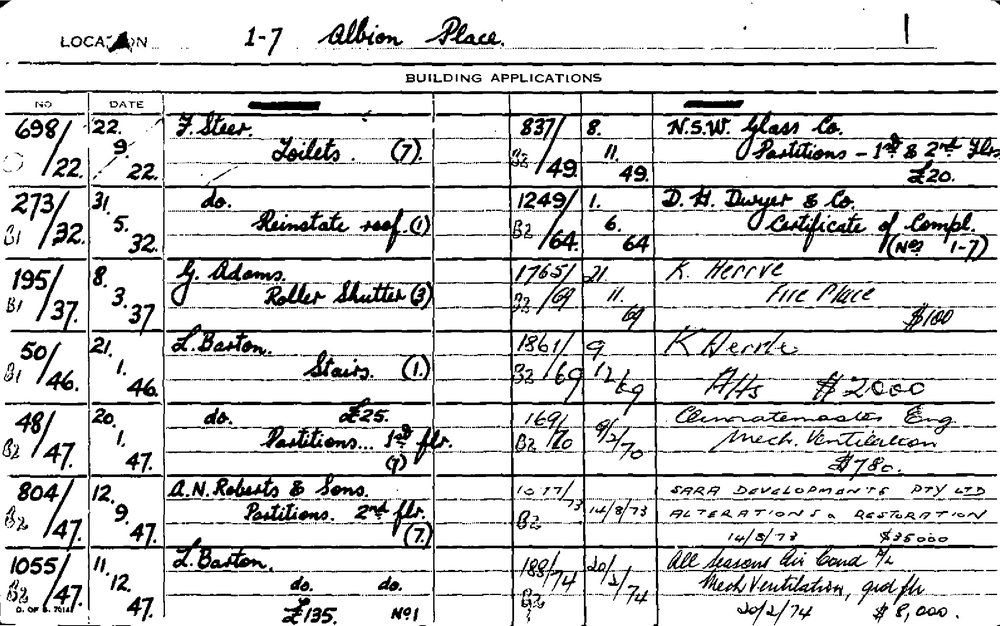 LOCATION 1-7 Albion Place. 1
BUILDING APPLICATIONS
NO DATE
698/22. 22.9.22. F. Steer.
Toilets. (7).
B1 273/32. 31.5.32. do.
Reinstate roof. (1)
B1 195/37. 8.3.37 G. Adams.
Roller Shutter (3)
B1 50/46. 21.1.46. L. Barton.
Stairs. (1.)
B2 48/47. 20.1.47. do. £25.
Partitions... 1st flr.
(7)
B2 804/47. 12.9.47. A. N. Roberts & Sons.
Partitions. 2nd flr.
(7.)
B2 1055/47. 11.12.47. L. Barton.
do. do.
£135. No1
D. OF B. 7014
B2 837/49. 8.11.49. N.S.W. Glass Co.
Partitions - 1st & 2nd Flrs
£20.
B2 1249/64. 1.6.64 D. H. Dwyer & Co.
Certificate of Compl.
(Nos 1-7)
B2 1765/69 21.11.69 K. Herrve
Fire Place
$100
B2 1861/69 9/12/69 K Herrve
Alts $2000
B2 169/70 9/2/70 Climatemaster Eng
Mech. Ventilation
$780.
B2 1077/73 14/8/73 SARA DEVELOPMENTS PTY LTD
ALTERATIONS & RESTORATION
14/8/73 $35000
B2 188/74 20/2/74 All Seasons Air Cond P/L
Mech Ventilation, grd flr
20/2/74 $8,000.